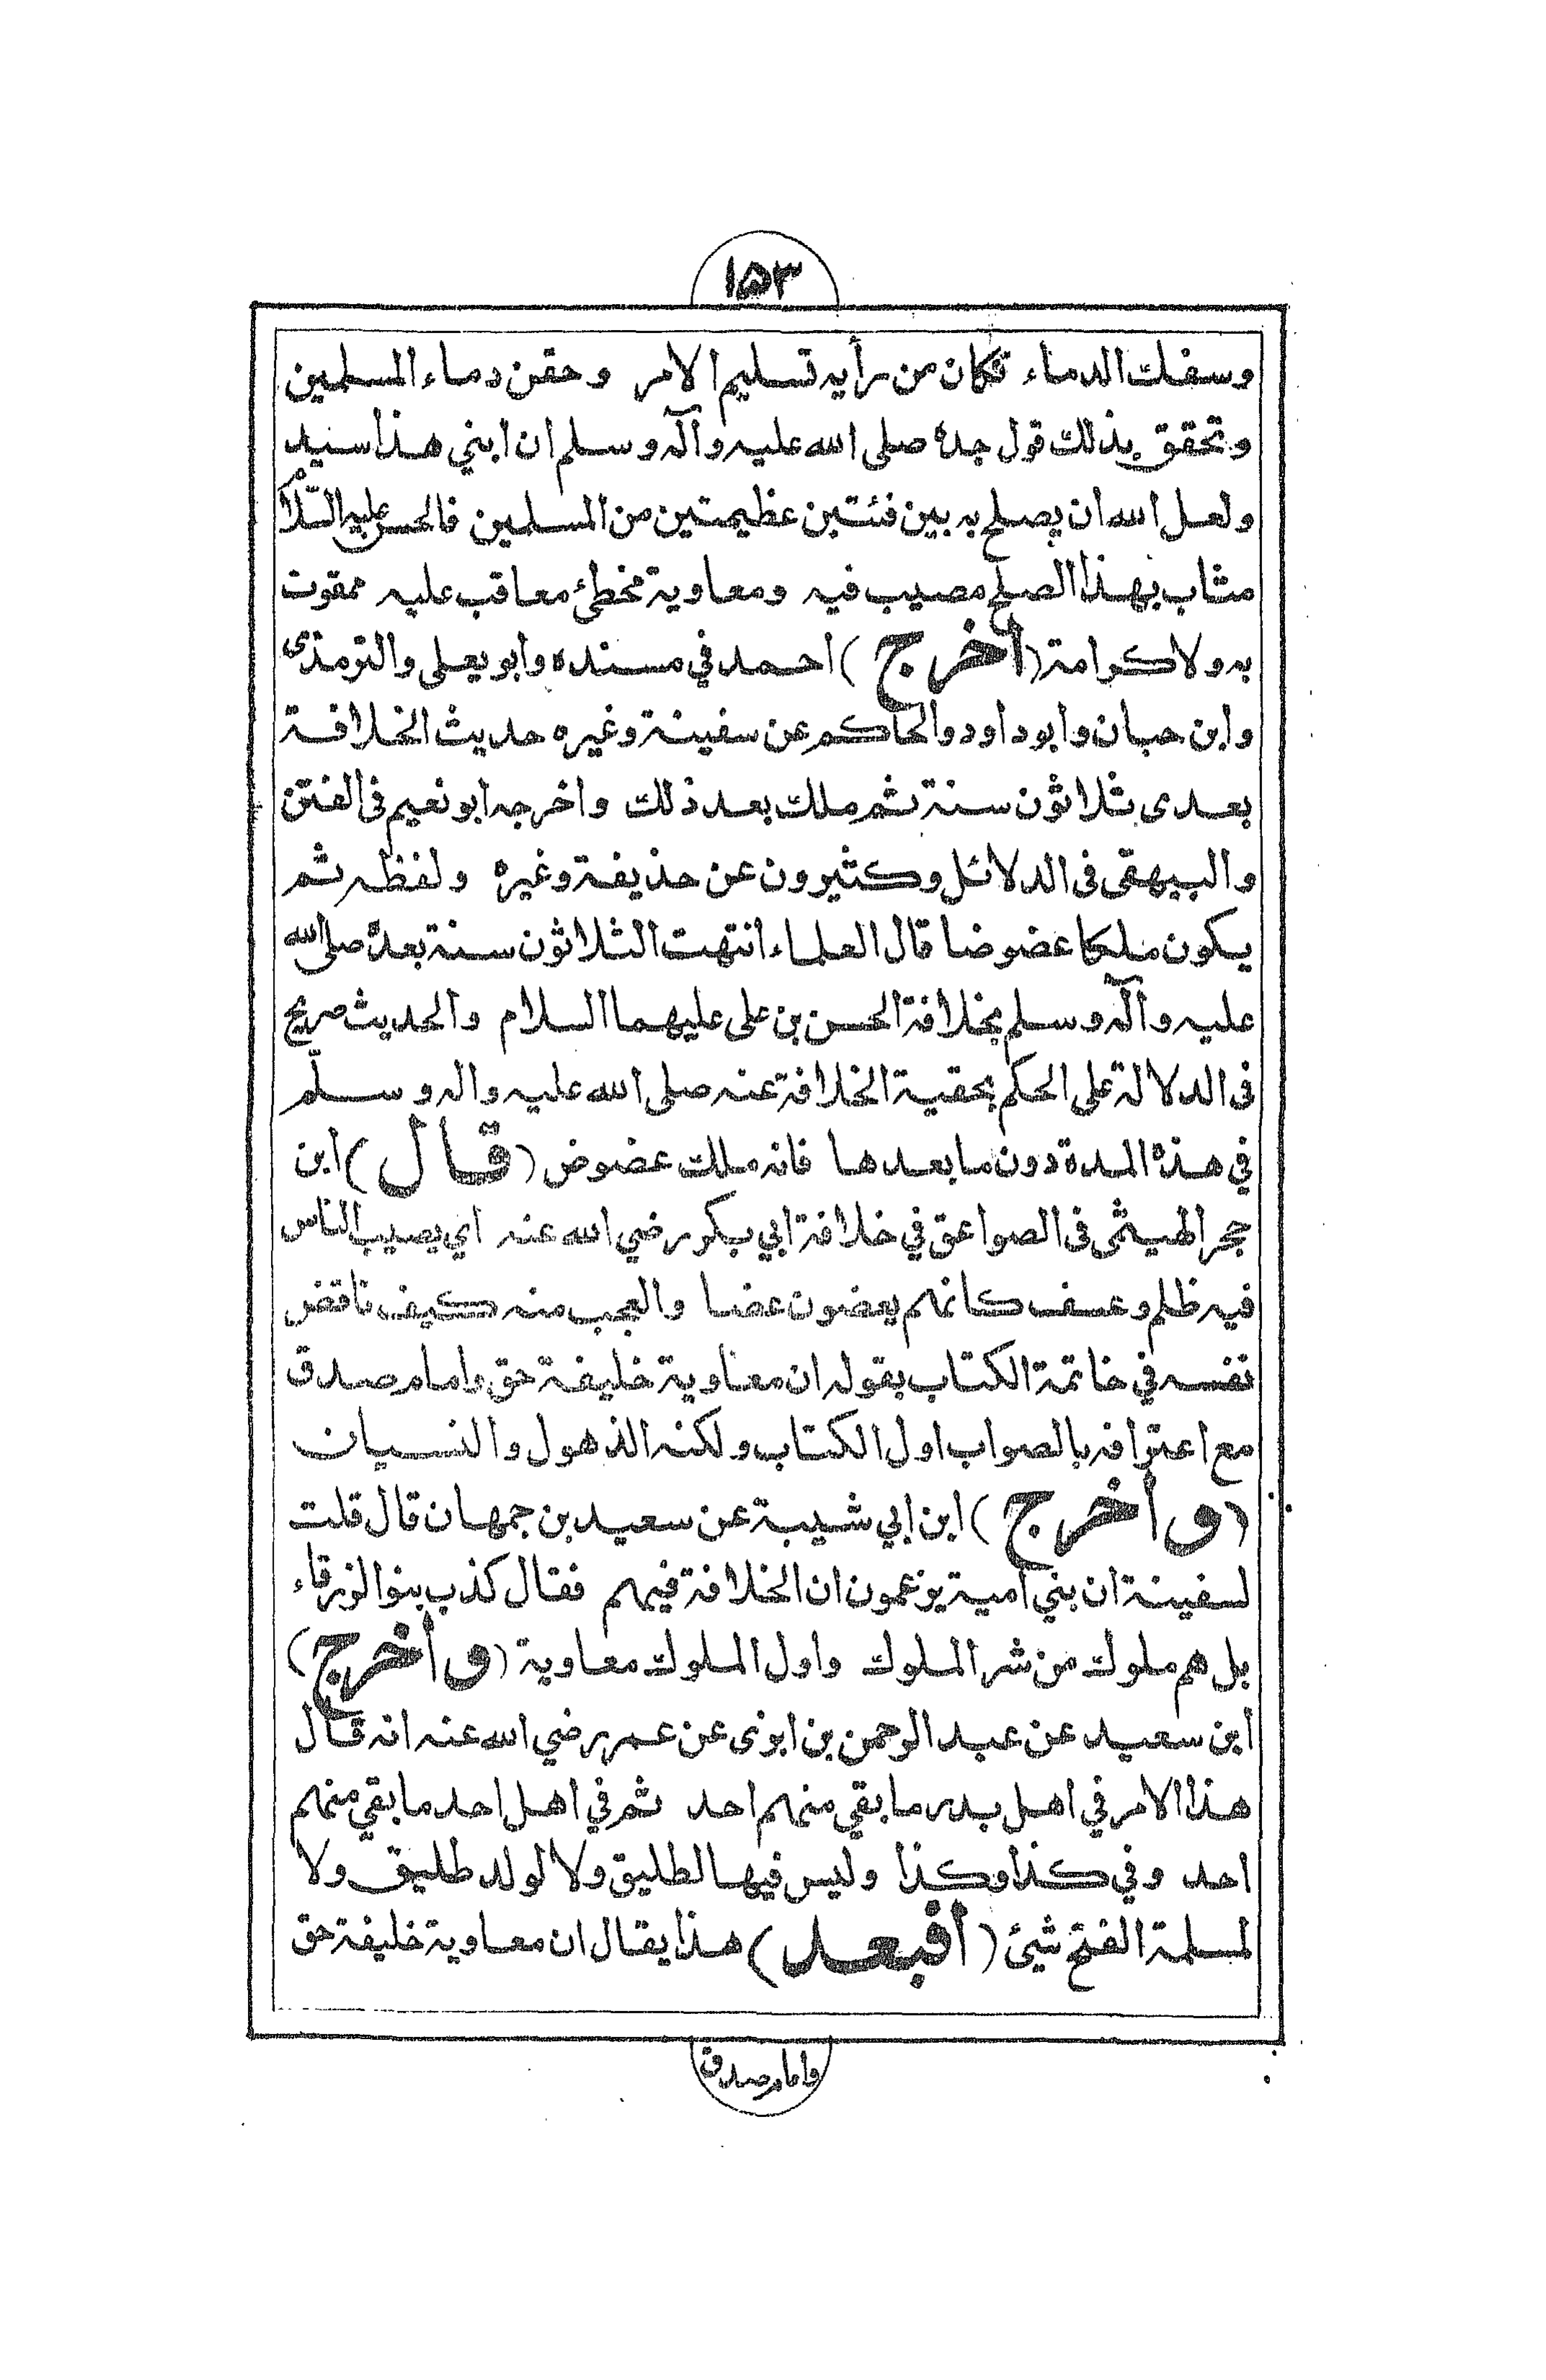 ١٥٣
وسفك الدماء فكان من رأيه تسليم الامر وحقن دماء المسلمين
وتحقق بذلك قول جده صلى الله عليه وآله وسلم ان ابني هذا سيد
ولعل الله ان يصلح به بين فئتين عظيمتين من المسلمين فالحسن عليه السّلام
مثاب بهذا الصلح مصيب فيه ومعاوية مخطئ معاقب عليه ممقوت
به ولا كرامة (أخرج) احمد في مسنده وابو يعلى والترمذى
وابن حبان وابو داود والحاكم عن سفينة وغيره حديث الخلافة
بعدى ثلاثون سنة ثم ملك بعد ذلك واخرجه ابو نعيم فى الفتن
والبيهقى فى الدلائل وكثيرون عن حذيفة وغيره ولفظه ثم
يكون ملكا عضوضا قال العلماء انتهت الثلاثون سنة بعده صلى الله
عليه وآله وسلم بخلافة الحسن بن على عليهما السلام والحديث صريح
فى الدلالة على الحكم بحقية الخلافة عنه صلى الله عليه واله وسلّم
في هذه المدة دون ما بعدها فانه ملك عضوض (قال) ابن
حجر الهيثمى فى الصواعق في خلافة ابي بكر رضي الله عنه اي يصيب الناس
فيه ظلم وعسف كانهم يعضون عضا والعجب منه كيف ناقض
نفسه في خاتمة الكتاب بقوله ان معاوية خليفة حق وامام صدق
مع اعترافه بالصواب اول الكتاب ولكنه الذهول والنسيان
(وأخرج) ابن ابي شيبة عن سعيد بن جمهان قال قلت
لسفينة ان بني امية يزعمون ان الخلافة فيهم فقال كذب بنو الزرقاء
بل هم ملوك من شر الملوك واول الملوك معاوية (وأخرج)
ابن سعيد عن عبد الرحمن بن ابزى عن عمر رضي الله عنه انه قال
هذا الامر في اهل بدر ما بقي منهم احد ثم في اهل احد ما بقي منهم
احد وفي كذا وكذا وليس فيها لطليق ولا لولد طليق ولا
لمسلمة الفتح شيئ (أفبعد) هذا يقال ان معاوية خليفة حق
وامام صدق